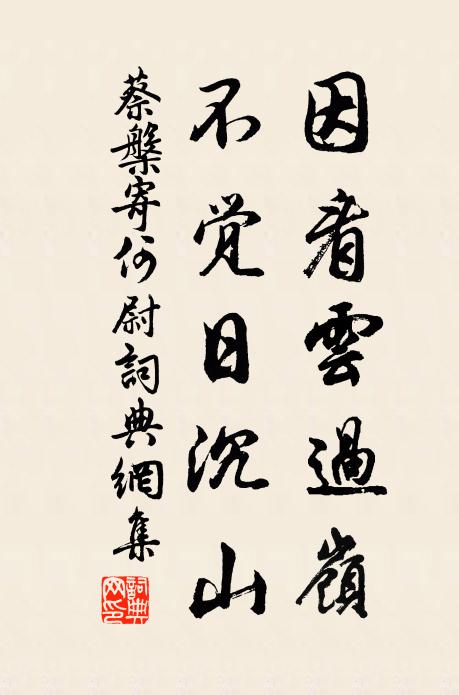 因看雲過嶺
不觉日沉山
蔡槃寄何尉詞典網集
詞典網印